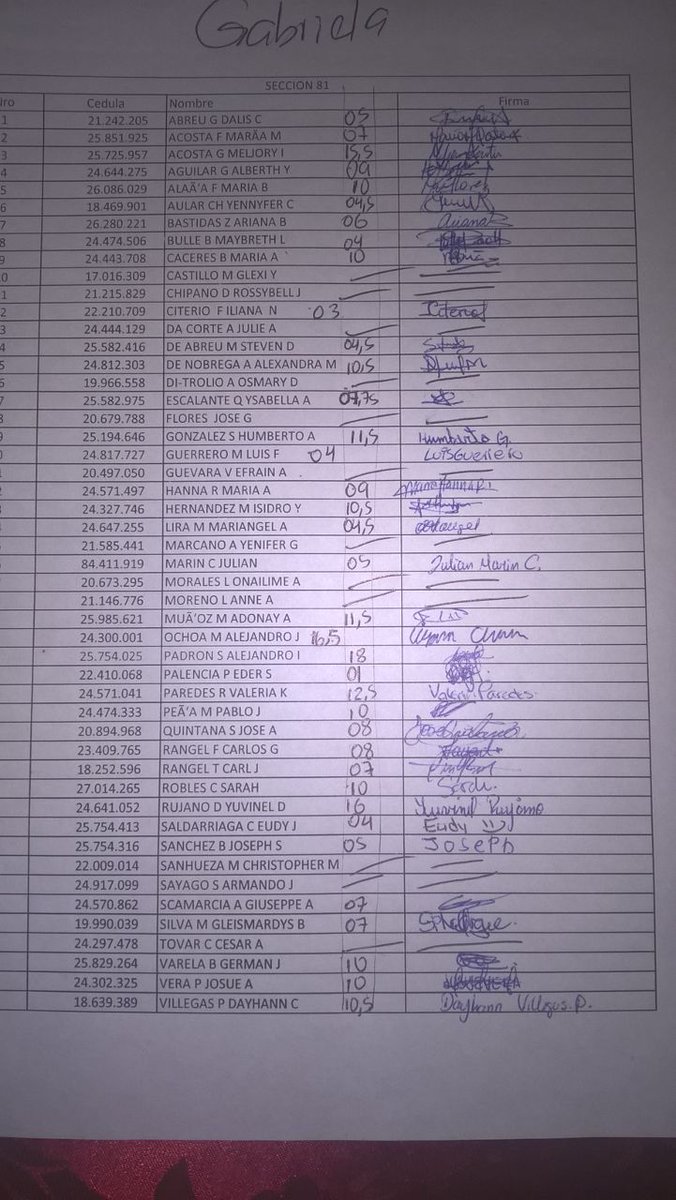 Gabriela
SECCION 81
ro Cedula Nombre Firma
1 21.242.205 ABREU G DALIS C 05
2 25.851.925 ACOSTA F MARÃA M 07
3 25.725.957 ACOSTA G MELJORY I 15,5
4 24.644.275 AGUILAR G ALBERTH Y 09
5 26.086.029 ALAÃ'A F MARIA B 10
6 18.469.901 AULAR CH YENNYFER C 04,5
7 26.280.221 BASTIDAS Z ARIANA B 06 Ariana B
8 24.474.506 BULLE B MAYBRETH L 04
9 24.443.708 CACERES B MARIA A 10
0 17.016.309 CASTILLO M GLEXI Y
1 21.215.829 CHIPANO D ROSSYBELL J
2 22.210.709 CITERIO F ILIANA N 03
3 24.444.129 DA CORTE A JULIE A
4 25.582.416 DE ABREU M STEVEN D 04,5
5 24.812.303 DE NOBREGA A ALEXANDRA M 10,5
6 19.966.558 DI-TROLIO A OSMARY D
7 25.582.975 ESCALANTE Q YSABELLA A 07,75
8 20.679.788 FLORES JOSE G
9 25.194.646 GONZALEZ S HUMBERTO A 11,5 Humberto G.
0 24.817.727 GUERRERO M LUIS F 04 LUIS Guerrero
1 20.497.050 GUEVARA V EFRAIN A
2 24.571.497 HANNA R MARIA A 09
3 24.327.746 HERNANDEZ M ISIDRO Y 10,5
24.647.255 LIRA M MARIANGEL A 04,5
21.585.441 MARCANO A YENIFER G
84.411.919 MARIN C JULIAN 05 Julian Marin C.
20.673.295 MORALES L ONAILIME A
21.146.776 MORENO L ANNE A
25.985.621 MUÃ'OZ M ADONAY A 11,5
24.300.001 OCHOA M ALEJANDRO J 16,5
25.754.025 PADRON S ALEJANDRO I 18
22.410.068 PALENCIA P EDER S 01
24.571.041 PAREDES R VALERIA K 12,5 Valeria Paredes.
24.474.333 PEÃ'A M PABLO J 10
20.894.968 QUINTANA S JOSE A 08
23.409.765 RANGEL F CARLOS G 08
18.252.596 RANGEL T CARL J 07
27.014.265 ROBLES C SARAH 10
24.641.052 RUJANO D YUVINEL D 16 Yuvinel Rujano
25.754.413 SALDARRIAGA C EUDY J 04 Eudy
25.754.316 SANCHEZ B JOSEPH S 05 JOSEPh
22.009.014 SANHUEZA M CHRISTOPHER M
24.917.099 SAYAGO S ARMANDO J
24.570.862 SCAMARCIA A GIUSEPPE A 07
19.990.039 SILVA M GLEISMARDYS B 07
24.297.478 TOVAR C CESAR A
25.829.264 VARELA B GERMAN J 10
24.302.325 VERA P JOSUE A 10
18.639.389 VILLEGAS P DAYHANN C 10,5 Dayhann Villegas. P.